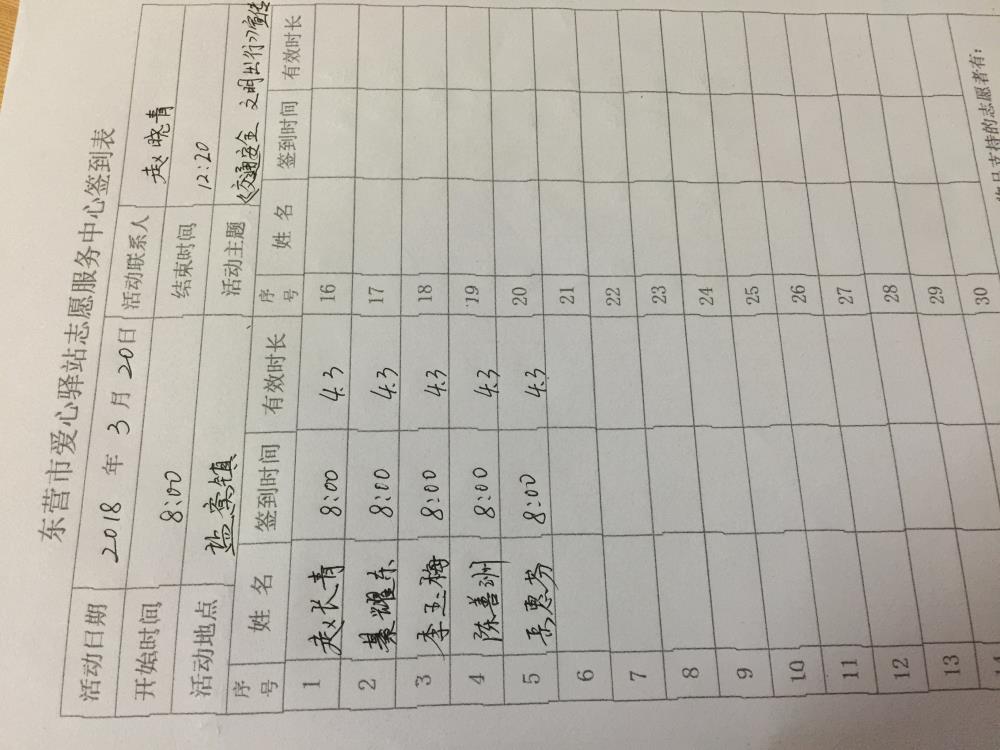 东营市爱心驿站志愿服务中心签到表
活动日期 2018 年 3 月 20 日 活动联系人 赵晓青
开始时间 8:00 结束时间 12:20
活动地点 盐窝镇 活动主题 《交通安全、文明出行》宣传
序号 姓名 签到时间 有效时长 序号 姓名 签到时间 有效时长
1 赵长青 8:00 4.3 16
2 綦耀东 8:00 4.3 17
3 李玉梅 8:00 4.3 18
4 陈善洲 8:00 4.3 19
5 8:00 4.3 20
6 21
7 22
8 23
9 24
10 25
11 26
12 27
13 28
14 29
30
物品支持的志愿者有: